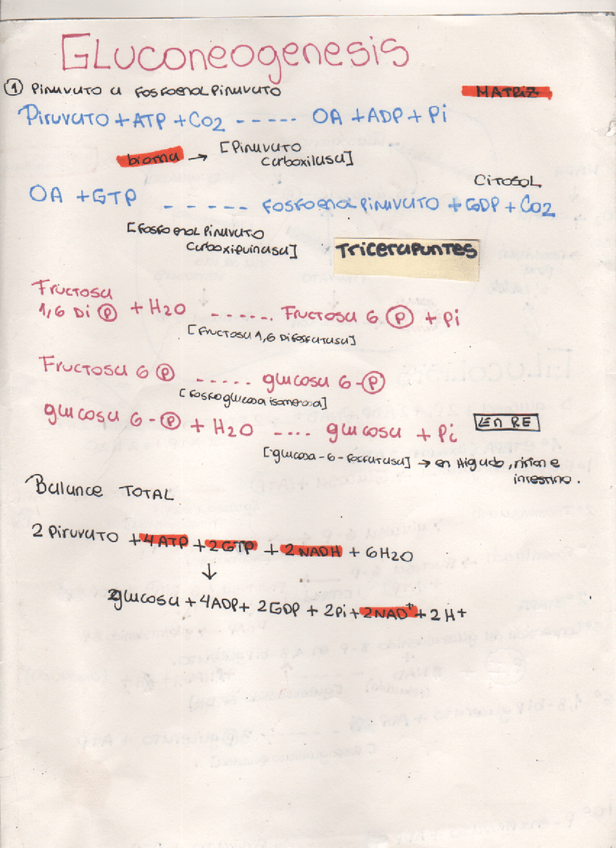 Gluconeogenesis
① Piruvato a fosfoenol piruvato MATRIZ
Piruvato + ATP + CO2 ----- OA + ADP + Pi
biotina → [Piruvato
carboxilasa]
CITOSOL
OA + GTP ----- fosfoenol piruvato + GDP + CO2
[fosfoenol piruvato
carboxiquinasa]
Tricerapuntes
Fructosa
1,6 Di Ⓟ + H2O ...... Fructosa 6 Ⓟ + Pi
[Fructosa 1,6 Difosfatasa]
Fructosa 6 Ⓟ ..... glucosa 6-Ⓟ
[fosfoglucosa isomerasa]
glucosa 6-Ⓟ + H2O .... glucosa + Pi EN RE
[glucosa-6-fosfatasa] → en Higado, riñon e
intestino.
Balance TOTAL
2 Piruvato + 4 ATP + 2 GTP + 2 NADH + 6 H2O
↓
glucosa + 4ADP + 2 GDP + 2Pi + 2 NAD+ + 2 H+